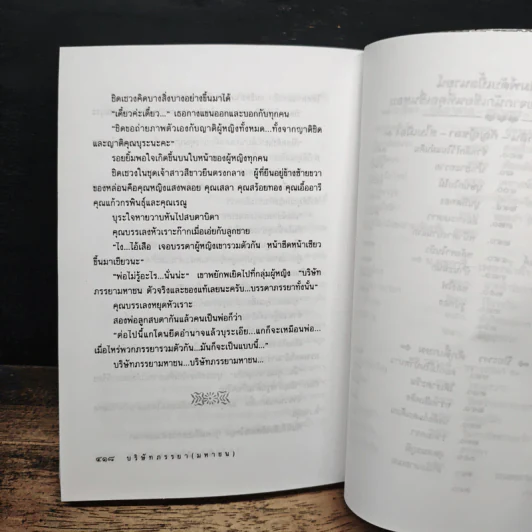 ชิดเชวงคิดบางสิ่งบางอย่างขึ้นมาได้
"เดี๋ยวค่ะเดี๋ยว..." เธอกางแขนออกและบอกกับทุกคน
"ชิดขอถ่ายภาพตัวเองกับญาติผู้หญิงทั้งหมด...ทั้งจากญาติชิด
และญาติคุณบุระนะคะ"
รอยยิ้มพอใจเกิดขึ้นบนใบหน้าของผู้หญิงทุกคน
ชิดเชวงในชุดเจ้าสาวสีขาวยืนตรงกลาง ผู้ที่ยืนอยู่ข้างซ้ายขวา
ของหล่อนคือคุณหญิงแสงพลอย คุณเสลา คุณสร้อยทอง คุณเอื้ออารี
คุณแก้วกรพินธุ์และคุณเรณู
บุระใจหายวาบหันไปสบตาบิดา
คุณบรรเลงหัวเราะก๊ากเมื่อเอ่ยกับลูกชาย
"ไง...ไอ้เสือ เจอบรรดาผู้หญิงเขารวมตัวกัน หน้าซีดหน้าเซียว
ขึ้นมาเชียวนะ"
"พ่อไม่รู้อะไร...นั่นน่ะ" เขาพยักพเยิดไปที่กลุ่มผู้หญิง "บริษัท
ภรรยามหาชน ตัวจริงและของแท้เลยนะครับ...บรรดาภรรยาทั้งนั้น"
คุณบรรเลงหยุดหัวเราะ
สองพ่อลูกสบตากันแล้วคนเป็นพ่อก็ว่า
"ต่อไปนี้แกโดนยึดอำนาจแล้วบุระเอ๊ย...แกก็จะเหมือนพ่อ...
เมื่อไหร่พวกภรรยารวมตัวกัน...มันก็จะเป็นแบบนี้..."
บริษัทภรรยามหาชน...บริษัทภรรยามหาชน...
๔๑๘ บริษัทภรรยา(มหาชน)